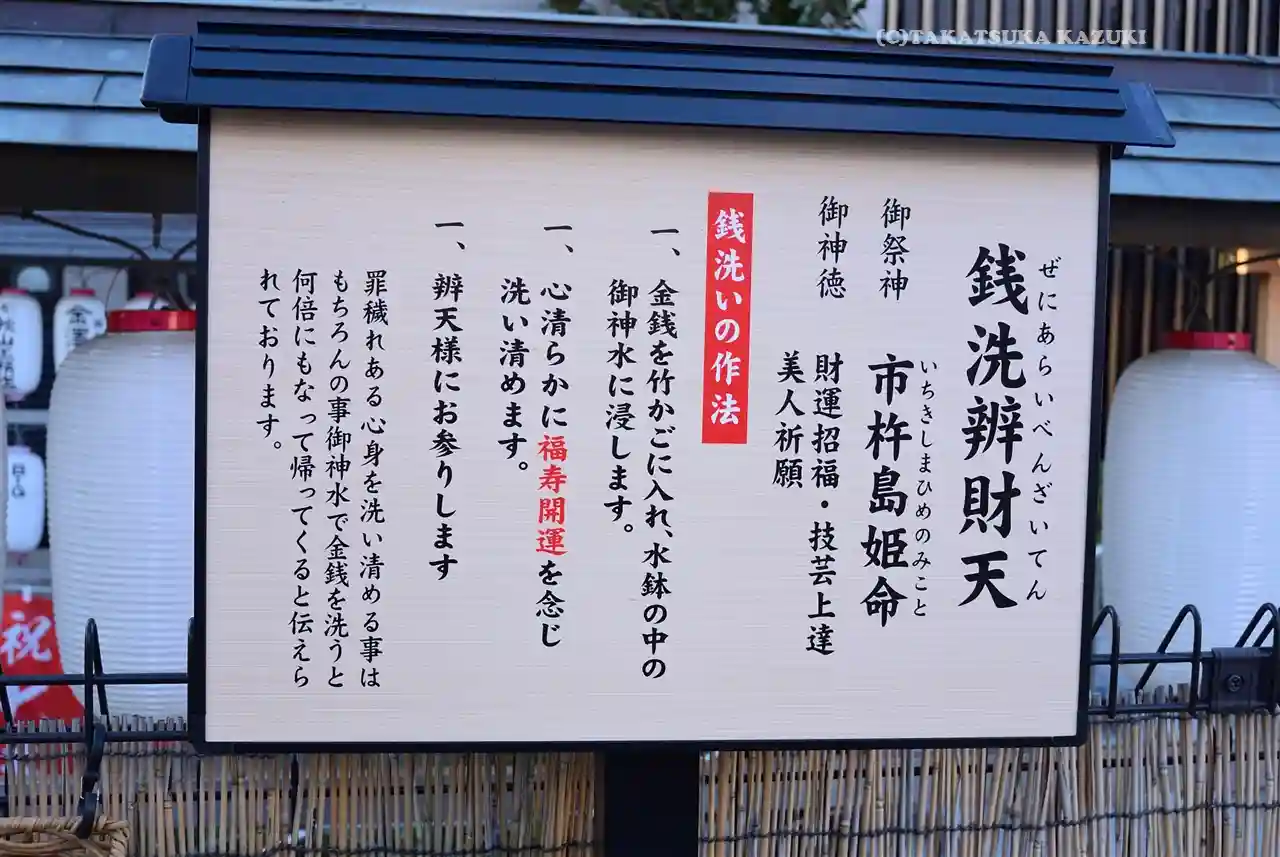 (C)TAKATSUKA KAZUKI
ぜにあらいべんざいてん
銭洗辨財天
御祭神 市杵島姫命
いちきしまひめのみこと
御神徳 財運招福・技芸上達
美人祈願
銭洗いの作法
一、金銭を竹かごに入れ、水鉢の中の
御神水に浸します。
一、心清らかに福寿開運を念じ
洗い清めます。
一、辨天様にお参りします
罪穢れある心身を洗い清める事は
もちろんの事御神水で金銭を洗うと
何倍にもなって帰ってくると伝えら
れております。
祝